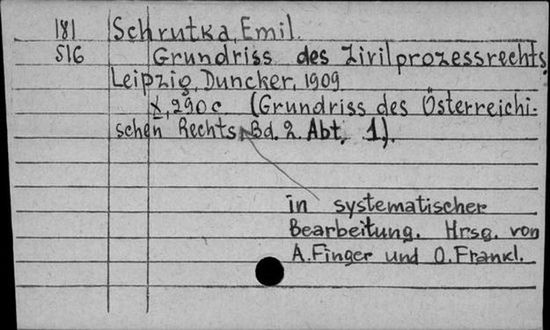 181 Schrutka, Emil.
516 Grundriss des Zivilprozessrechts.
Leipzig, Duncker, 1909
X, 290 c (Grundriss des Österreichi-
schen Rechts, Bd. 2. Abt. 1).
in systematischer
Bearbeitung. Hrsg. von
A. Finger und O. Frankl.